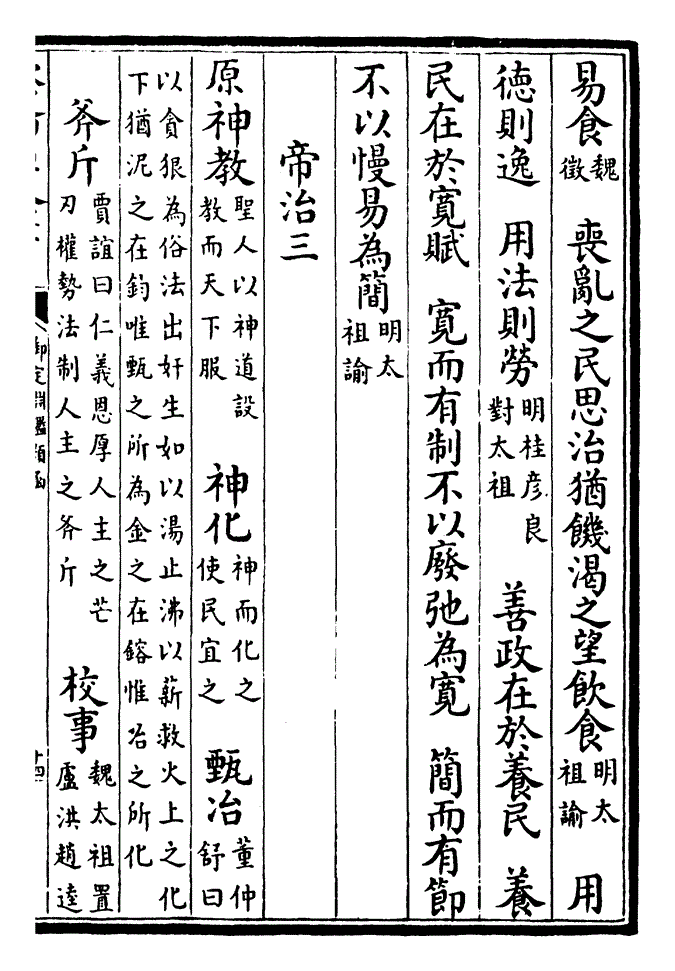 易食魏徵　喪亂之民思治猶饑渴之望飲食明太祖諭　用
德則逸　用法則勞明桂彥良對太祖　善政在於養民　養
民在於寛賦　寛而有制不以廢弛為寛　簡而有節
不以慢易為簡明太祖諭
帝治三
原神教聖人以神道設教而天下服　神化神而化之使民宜之　甄冶董仲舒曰
以貪狠為俗法出奸生如以湯止沸以薪救火上之化
下猶泥之在鈞唯甄之所為金之在鎔惟冶之所化
斧斤賈誼曰仁義恩厚人主之芒刃權勢法制人主之斧斤　校事魏太祖置盧洪趙逵
御定淵鑑類函
十四